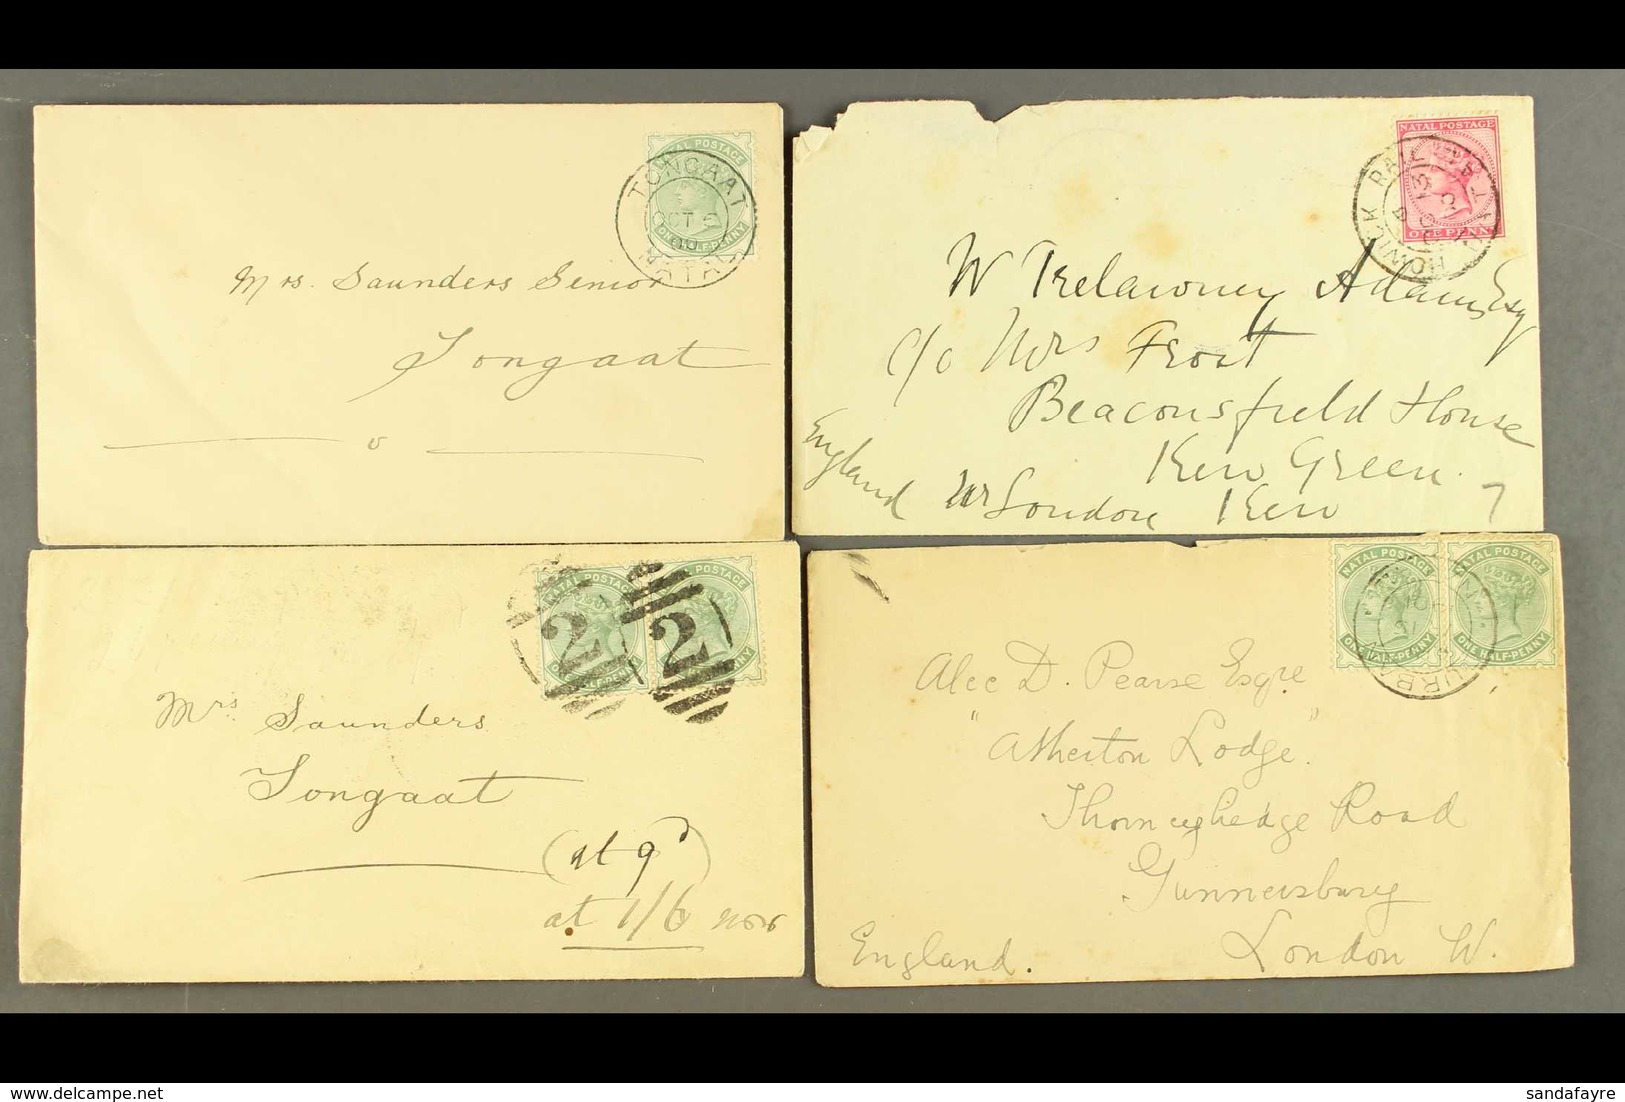 NATAL POSTAGE
TONGAAT
OCT 6
NATAL
ONE HALF-PENNY
Mrs. Saunders Senior
Tongaat
NATAL POSTAGE
HOWICK RAIL
ONE PENNY
W Trelawney Adams Esq
c/o Mrs Frost
Beaconsfield House
Kew Green
England Nr London Kew 7
NATAL POSTAGE NATAL POSTAGE
2 2
ONE HALF-PENNY
Mrs Saunders
Tongaat
(at 9d)
at 1/6 now
NATAL POSTAGE NATAL POSTAGE
ONE HALF-PENNY ONE HALF-PENNY
DURBAN
Alec D. Pearse Esqre
"Atherton Lodge"
Thorneyhedge Road
Gunnersbury
London W.
England.
sandafayre